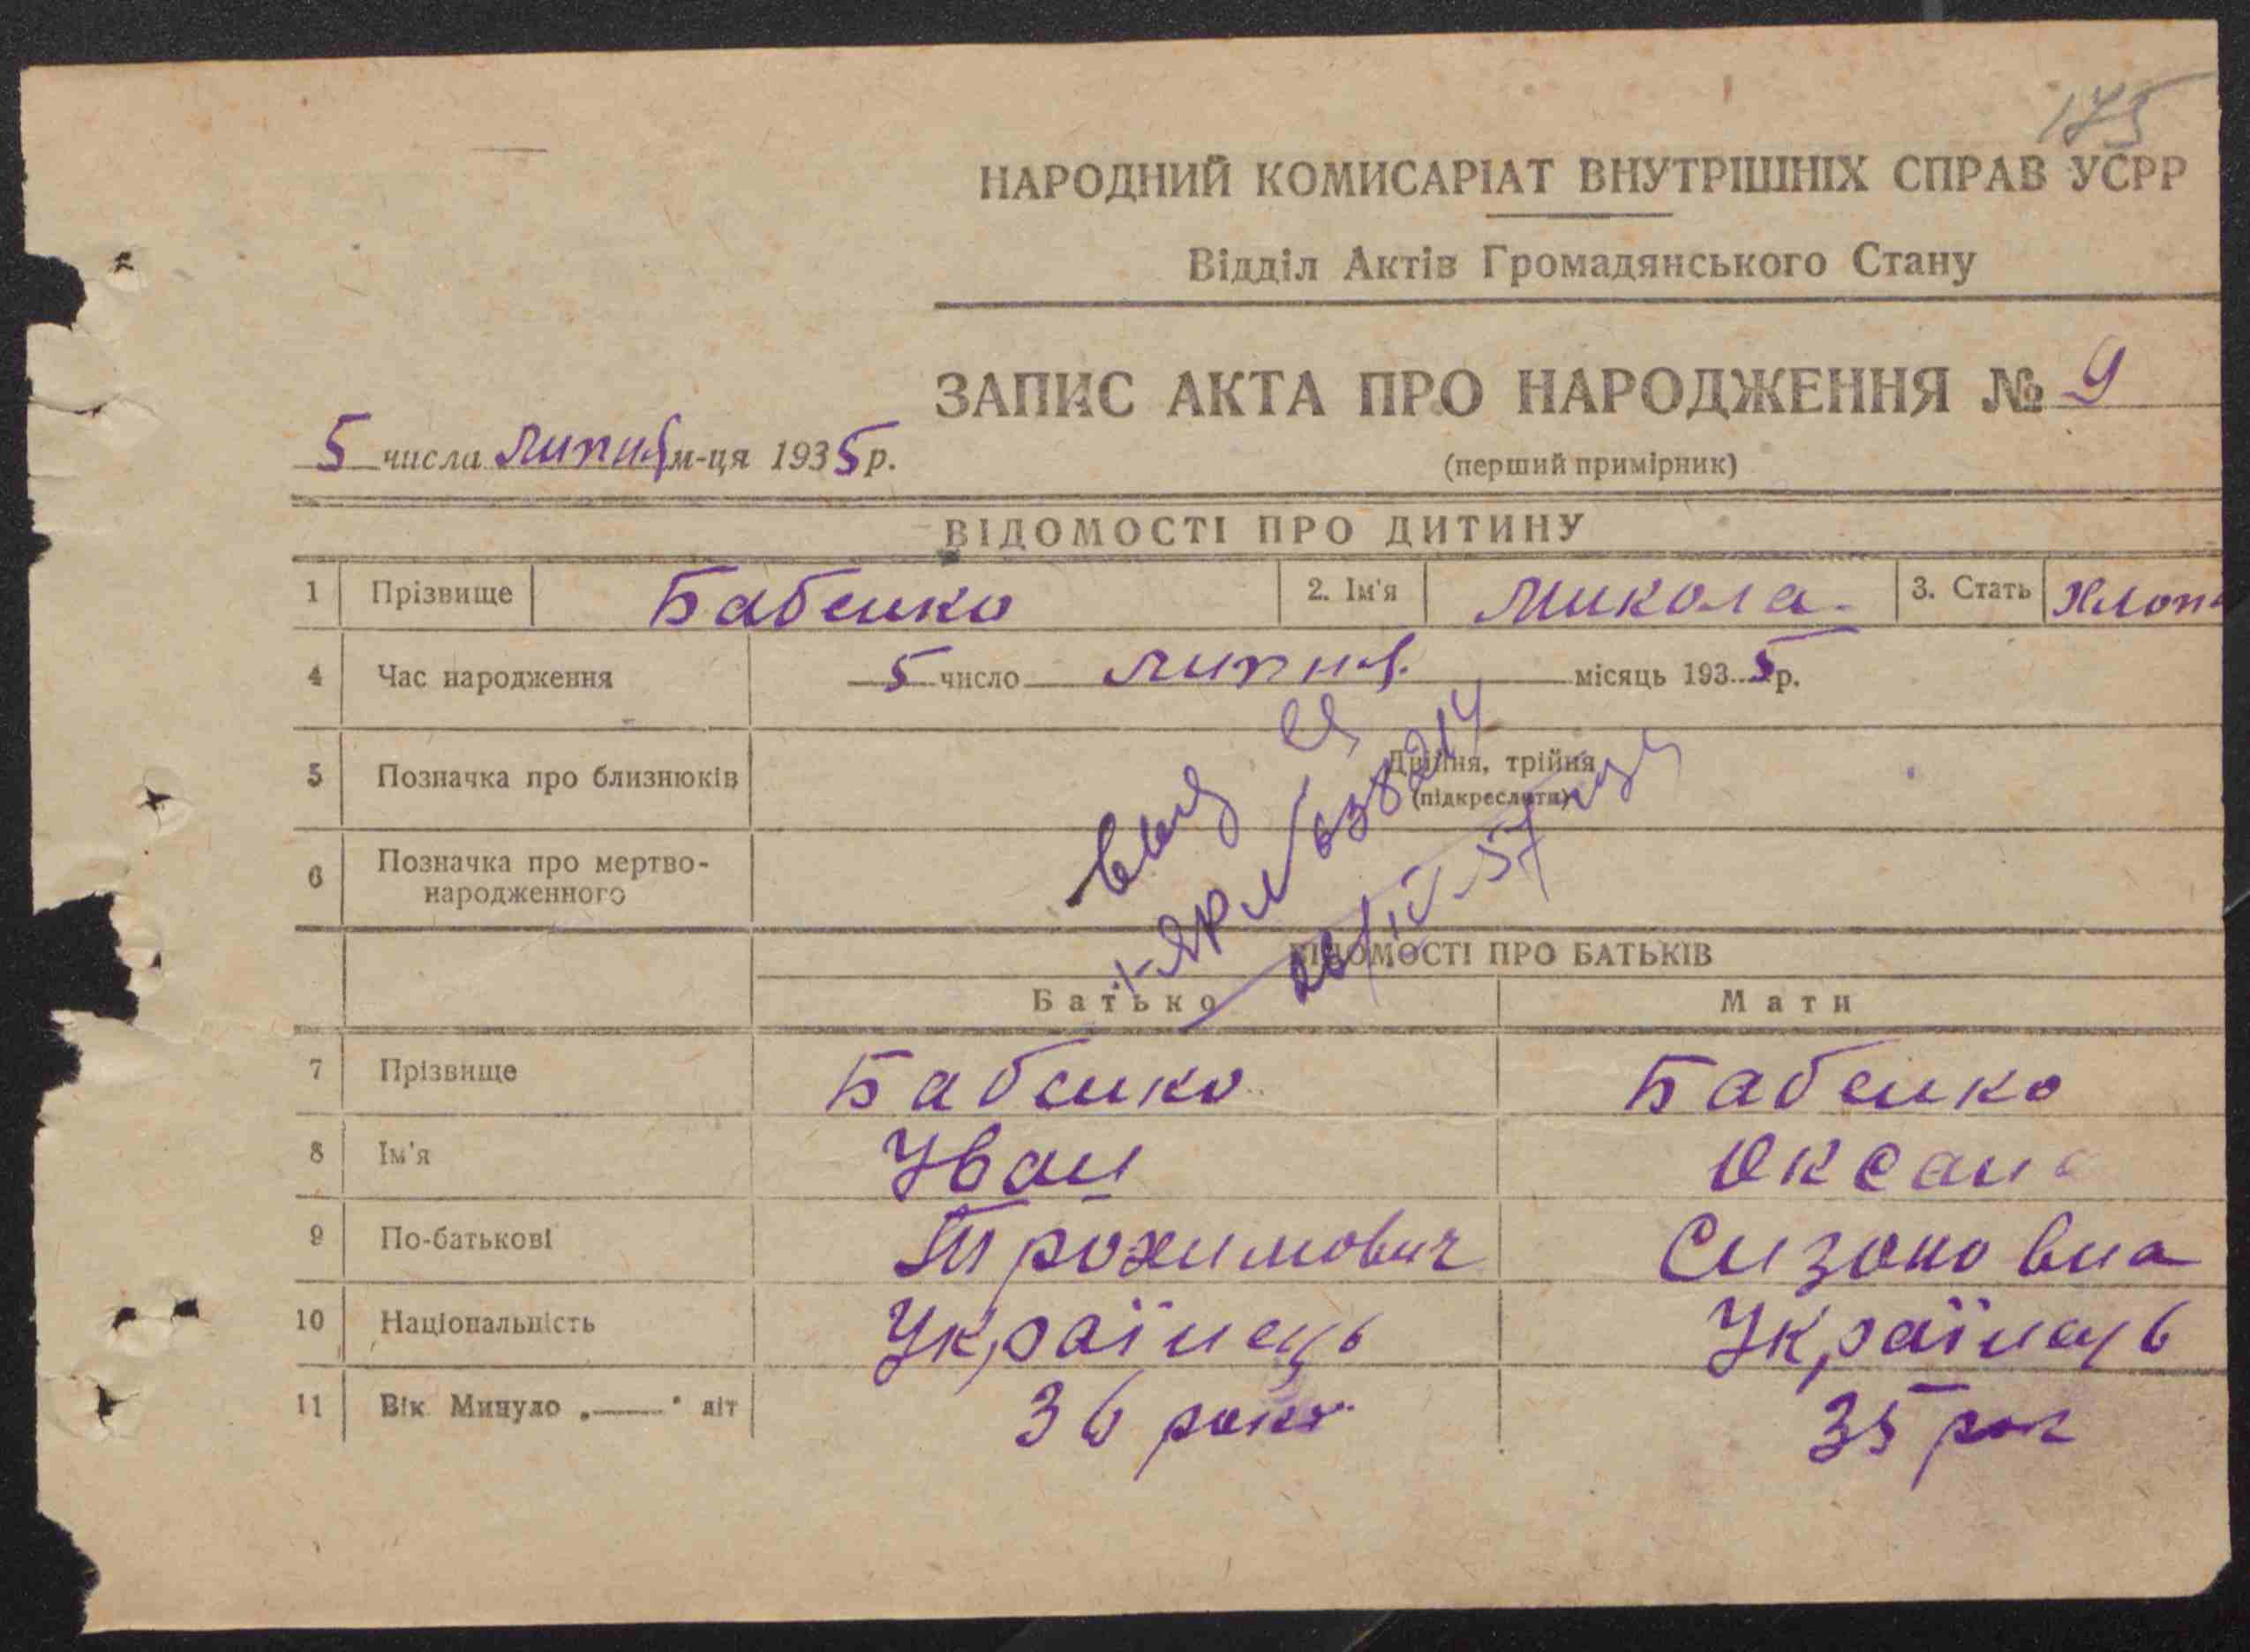 175
НАРОДНИЙ КОМИСАРІАТ ВНУТРІШНІХ СПРАВ УСРР
Відділ Актів Громадянського Стану
ЗАПИС АКТА ПРО НАРОДЖЕННЯ № 9
5 числа липня м-ця 1935 р.
(перший примірник)
ВІДОМОСТІ ПРО ДИТИНУ
1 Прізвище Бабенко 2. Ім'я Микола 3. Стать Хлоп
4 Час народження 5 число липня місяць 1935 р.
5 Позначка про близнюків Двійня, трійня
(підкреслити)
6 Позначка про мертво-
народженного
26/IV-57
ВІДОМОСТІ ПРО БАТЬКІВ
Батько Мати
7 Прізвище Бабенко Бабенко
8 Ім'я Іван Оксана
9 По-батькові Трохимович Сизоновна
10 Національність Українець Українець
11 Вік Минуло „—" літ 36 35 рок